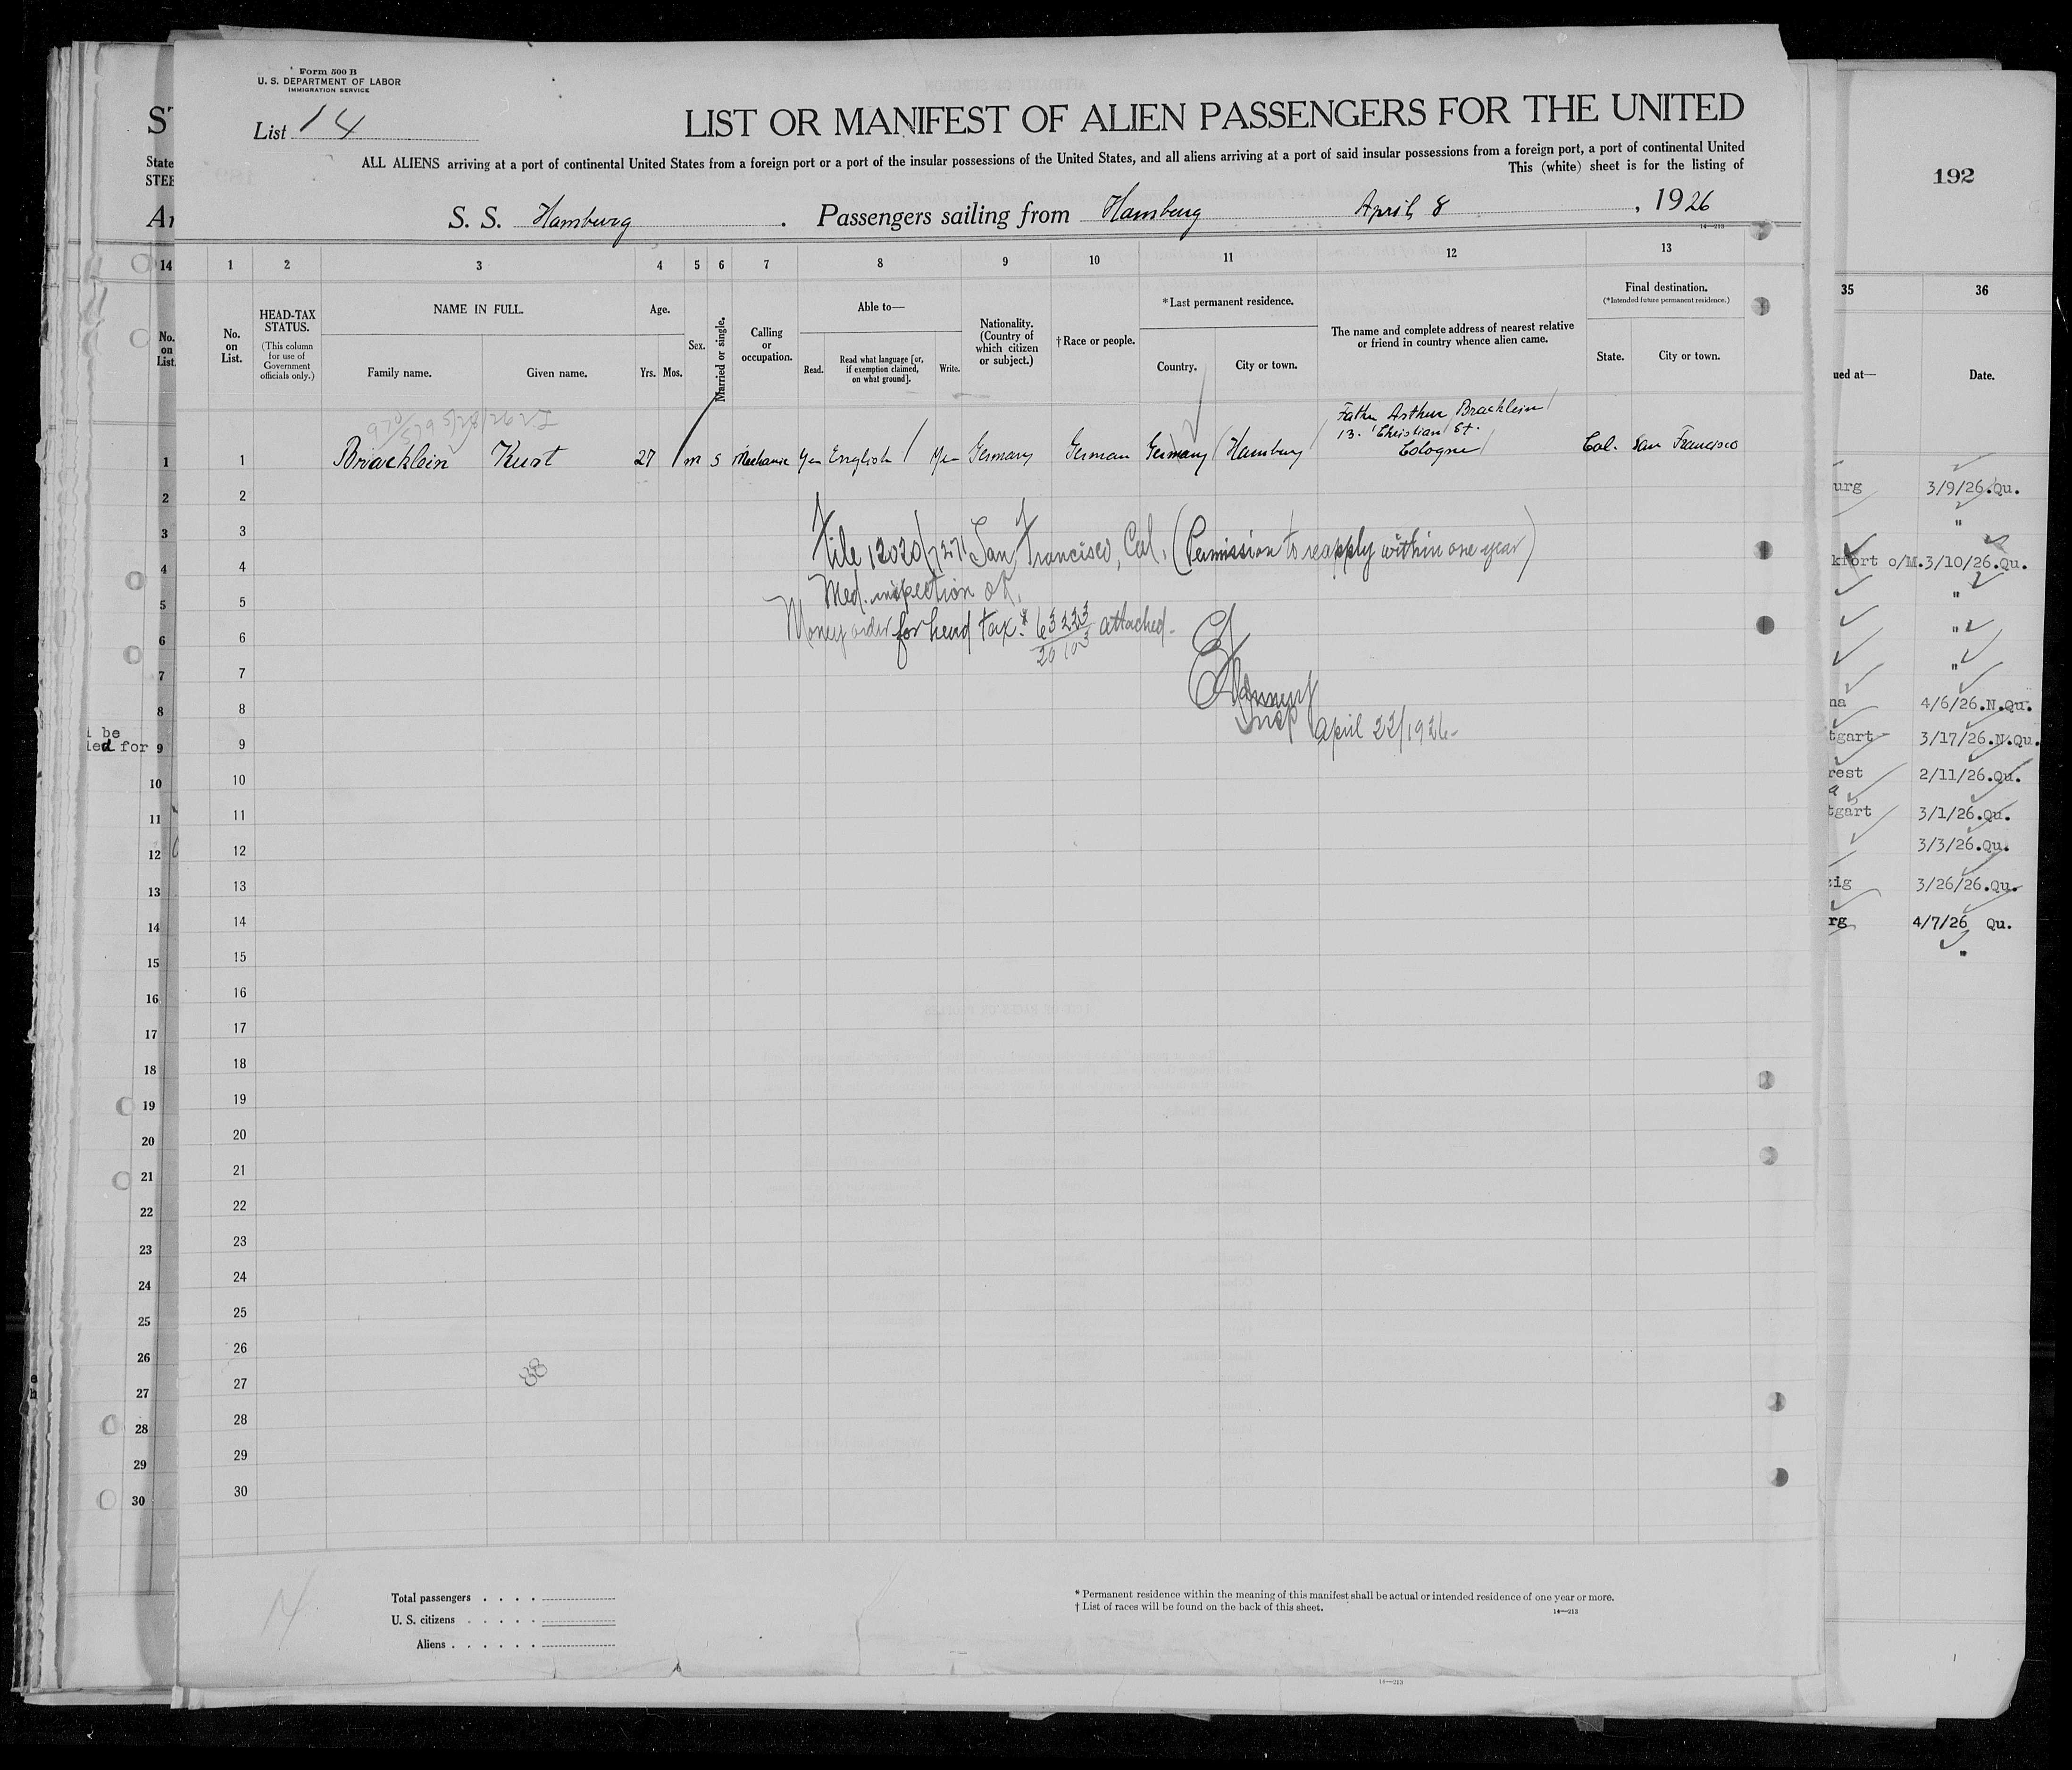 Form 500 B
U. S. DEPARTMENT OF LABOR
IMMIGRATION SERVICE
List 14
LIST OR MANIFEST OF ALIEN PASSENGERS FOR THE UNITED
ALL ALIENS arriving at a port of continental United States from a foreign port or a port of the insular possessions of the United States, and all aliens arriving at a port of said insular possessions from a foreign port, a port of continental United
This (white) sheet is for the listing of
S. S. Hamburg . Passengers sailing from Hamburg April 8 , 1926
14—213
1 2 3 4 5 6 7 8 9 10 11 12 13
No. on List.
HEAD-TAX STATUS.
(This column for use of Government officials only.)
NAME IN FULL.
Family name. Given name.
Age.
Yrs. Mos.
Sex.
Married or single.
Calling or occupation.
Able to—
Read. Read what language [or, if exemption claimed, on what ground]. Write.
Nationality. (Country of which citizen or subject.)
† Race or people.
* Last permanent residence.
Country. City or town.
The name and complete address of nearest relative or friend in country whence alien came.
Final destination.
(*Intended future permanent residence.)
State. City or town.
970/579 5/28/26
Father Arthur Bracklein
13. Christian St.
Cologne
1 Bracklein Kurt 27 m s Mechanic Yes English Yes Germany German Germany Hamburg Cal. San Francisco
2
3
File 12020/ San Francisco, Cal. (Permission to reapply within one year)
4
Med. inspection ok.
5
6
Money order for head tax # 63233 attached.
20103
7
8
Insp April 22/1926
9
10
11
12
13
14
15
16
17
18
19
20
21
22
23
24
25
26
27
88
28
29
30
Total passengers . . . .
U. S. citizens . . . . .
Aliens . . . . . .
* Permanent residence within the meaning of this manifest shall be actual or intended residence of one year or more.
† List of races will be found on the back of this sheet.
14—213
14—213
State
STEE
14
No. on List.
1
2
3
4
5
6
7
8
be
led for 9
10
11
12
13
14
15
16
17
18
19
20
21
22
23
24
25
26
27
28
29
30
192
35 36
ued at— Date.
urg 3/9/26.Qu.
"
kfort o/M. 3/10/26.Qu.
"
"
"
na 4/6/26.N.Qu.
tgart 3/17/26.N.Qu.
rest 2/11/26.Qu.
a
tgart 3/1/26.Qu.
3/3/26.Qu.
zig 3/26/26.Qu.
rg 4/7/26 Qu.
"